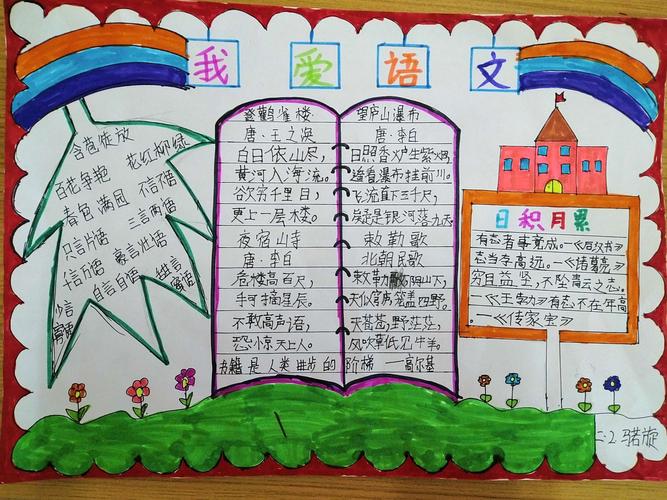 我爱语文
含苞绽放
花红柳绿
百花争艳
不言不语
春色满园
三言两语
只言片语
千言万语
自言自语
登鹳雀楼
唐·王之涣
白日依山尽，
黄河入海流。
欲穷千里目，
更上一层楼。
夜宿山寺
唐·李白
危楼高百尺，
手可摘星辰。
不敢高声语，
恐惊天上人。
望庐山瀑布
唐·李白
日照香炉生紫烟，
遥看瀑布挂前川。
飞流直下三千尺，
疑是银河落九天。
敕勒歌
北朝民歌
敕勒川阴山下，
天似穹庐笼盖四野。
天苍苍，野茫茫，
风吹草低见牛羊。
书籍是人类进步的阶梯 —高尔基
日积月累
有志者事竟成。—《后汉书》
志当存高远。—《诸葛亮》
穷且益坚，不坠青云之志。
—《王勃》有志不在年高
—《传家宝》
二.2 骆旋